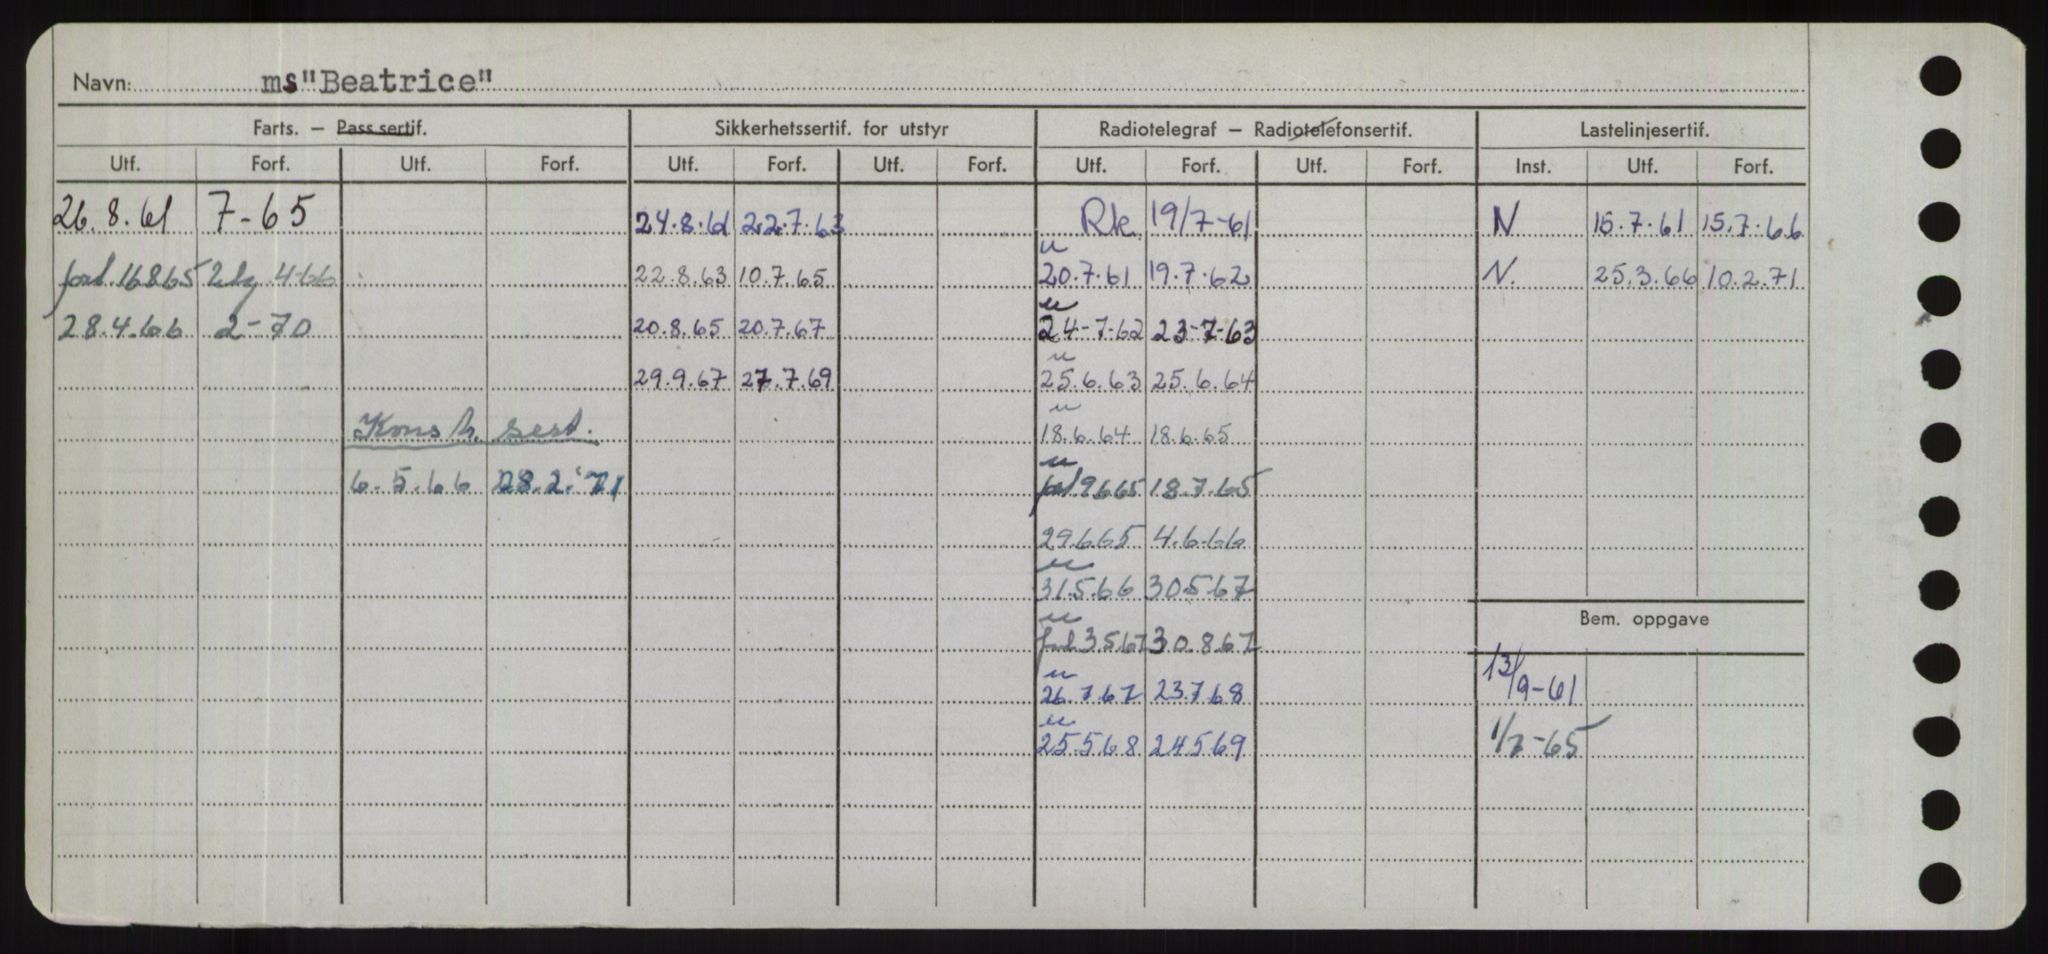 Navn: ms "Beatrice"
Farts. — Pass sertif. Sikkerhetssertif. for utstyr Radiotelegraf — Radiotelefonsertif. Lastelinjesertif.
Utf. Forf. Utf. Forf. Utf. Forf. Utf. Forf. Utf. Forf. Utf. Forf. Inst. Utf. Forf.
26.8.61 7-65 24.8.61 22.7.63 Rk 19/7-61 N 15.7.61 15.7.66
u
forl. 16865 4-66 22.8.63 10.7.65 20.7.61 19.7.62 N. 25.3.66 10.2.71
u
28.4.66 2-70 20.8.65 20.7.67 24-7-62 23-7-63
u
29.9.67 27.7.69 25.6.63 25.6.64
u
Konstr. sert. 18.6.64 18.6.65
u
6.5.66 28.2.'71 forl 9665 18.7.65
29.6.65 4.6.66
u
31.5.66 30.5.67
Bem. oppgave
u
forl. 3567 30.8.67
13/9-61
u
26.7.67 23.7.68
u
25.5.68 24.5.69 1/7-65